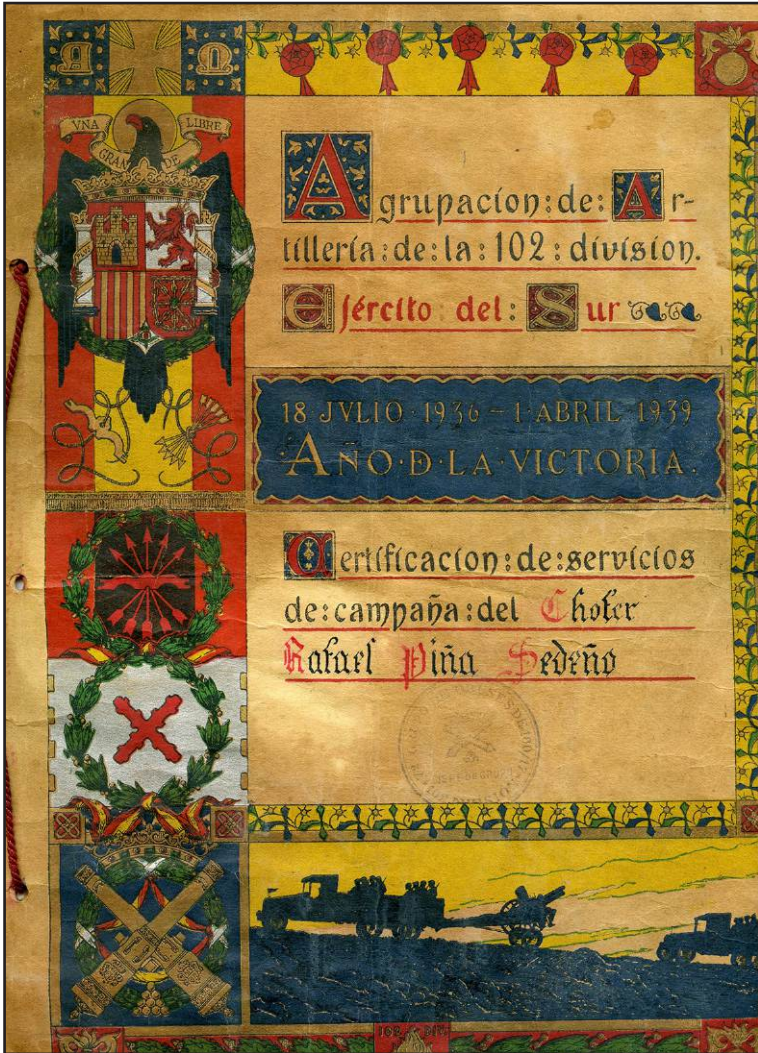 VNA GRANDE LIBRE
Agrupacion:de:Ar-
tillería:de:la:102:division.
Ejército del: Sur
18·JVLIO·1936–1·ABRIL·1939
·AÑO·D·LA·VICTORIA.
Certificacion:de:servicios
de:campaña:del Chofer
Rafael Piña Sedeño
102 DIV.